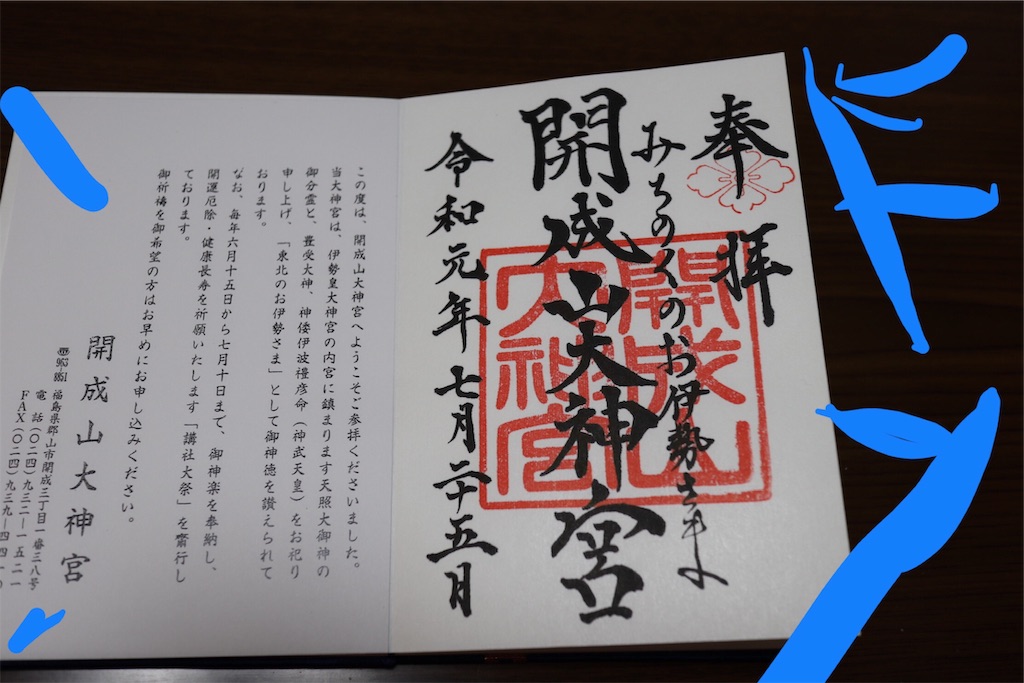 奉拝
みちのくのお伊勢さま
開成山大神宮
令和元年七月二十五日
開成山
大神宮
この度は、開成山大神宮へようこそご参拝くださいました。
当大神宮は、伊勢皇大神宮の内宮に鎮まります天照大御神の
御分霊と、豊受大神、神倭伊波禮彦命(神武天皇)をお祀り
申し上げ、「東北のお伊勢さま」として御神徳を讃えられて
おります。
なお、毎年六月十五日から七月十日まで、御神楽を奉納し、
開運厄除・健康長寿を祈願いたします「講社大祭」を齋行し
ております。
御祈祷を御希望の方はお早めにお申し込みください。
開成山大神宮
〒963-8851 福島県郡山市開成三丁目一番三八号
電話(〇二四)九三二―一五二一
FAX(〇二四)九三九―四四